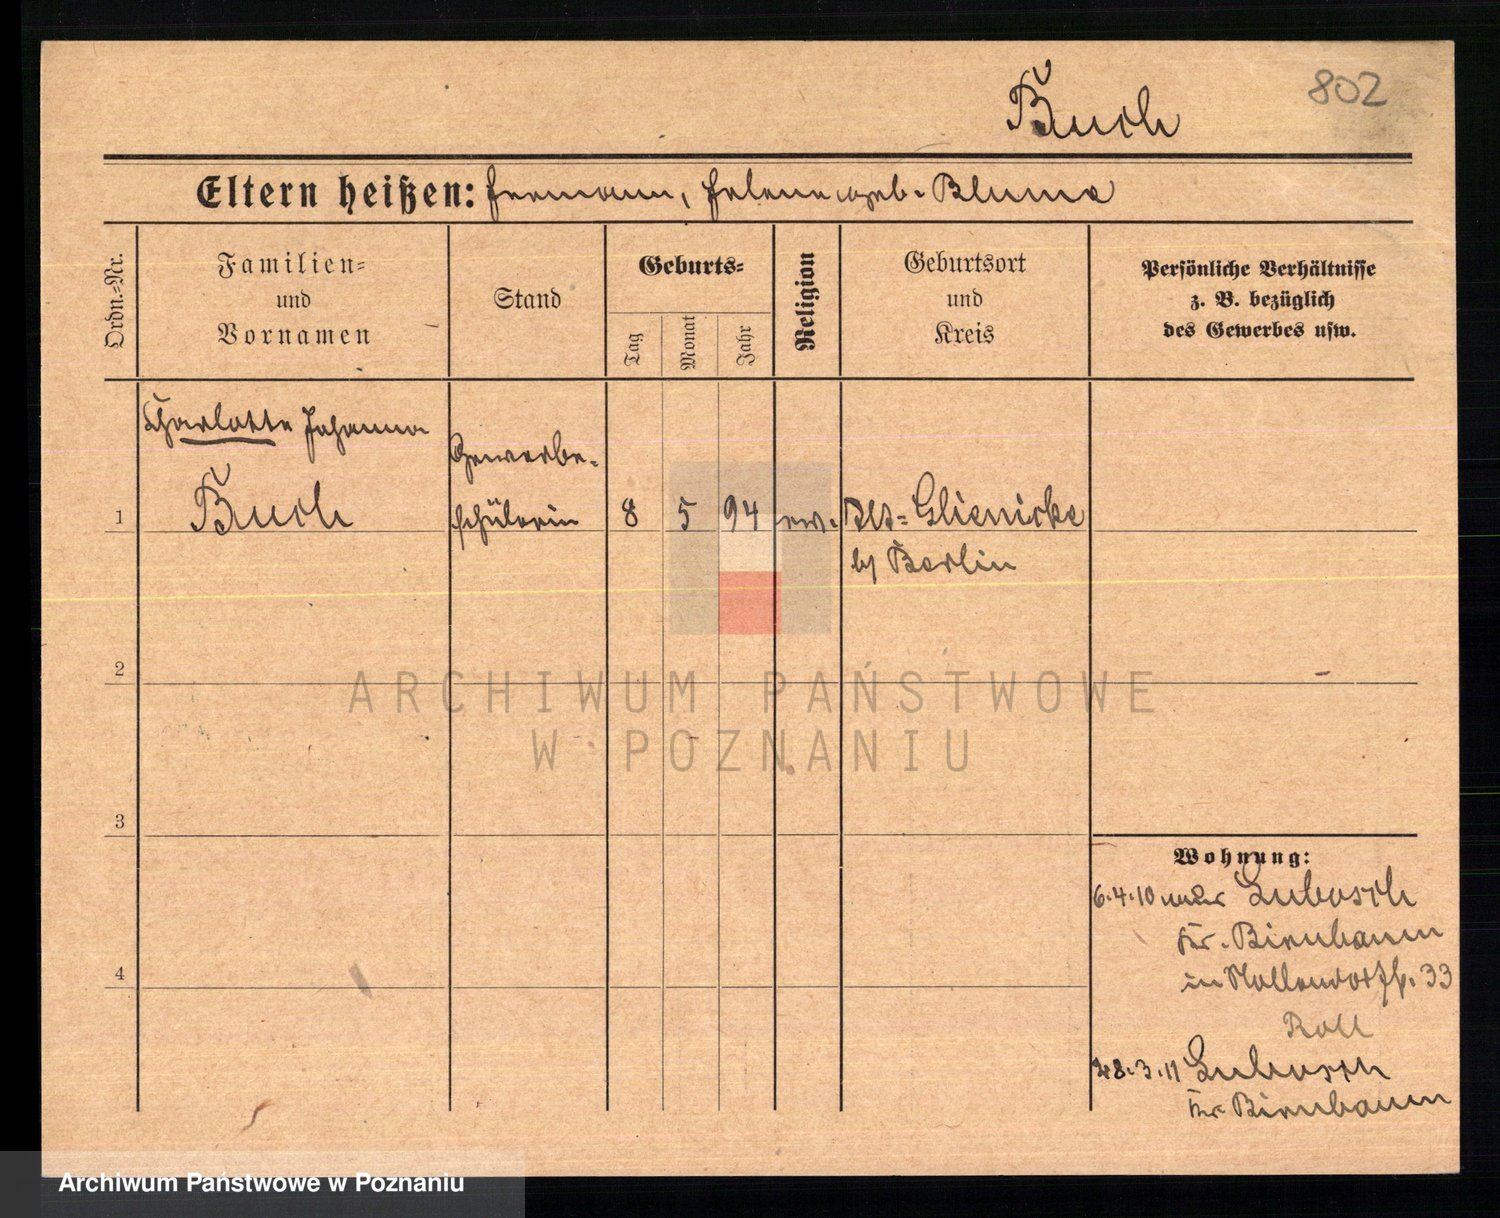 802
Buch
Eltern heißen: Hermann, Helene geb. Blume
Ordn.-Nr.
Familien-
und
Vornamen
Stand
Geburts-
Tag
Monat
Jahr
Religion
Geburtsort
und
Kreis
Persönliche Verhältnisse
z. B. bezüglich
des Gewerbes usw.
Charlotte Johanna
Buch
Gewerbe-
schülerin
1
8
5
94
ev.
Glienicke
b/ Berlin
2
3
4
Wohnung:
6.4.10 Lubosch
Kr. Birnbaum
in 33
28.3.11 Lubosch
Kr. Birnbaum
ARCHIWUM PAŃSTWOWE
W POZNANIU
Archiwum Państwowe w Poznaniu